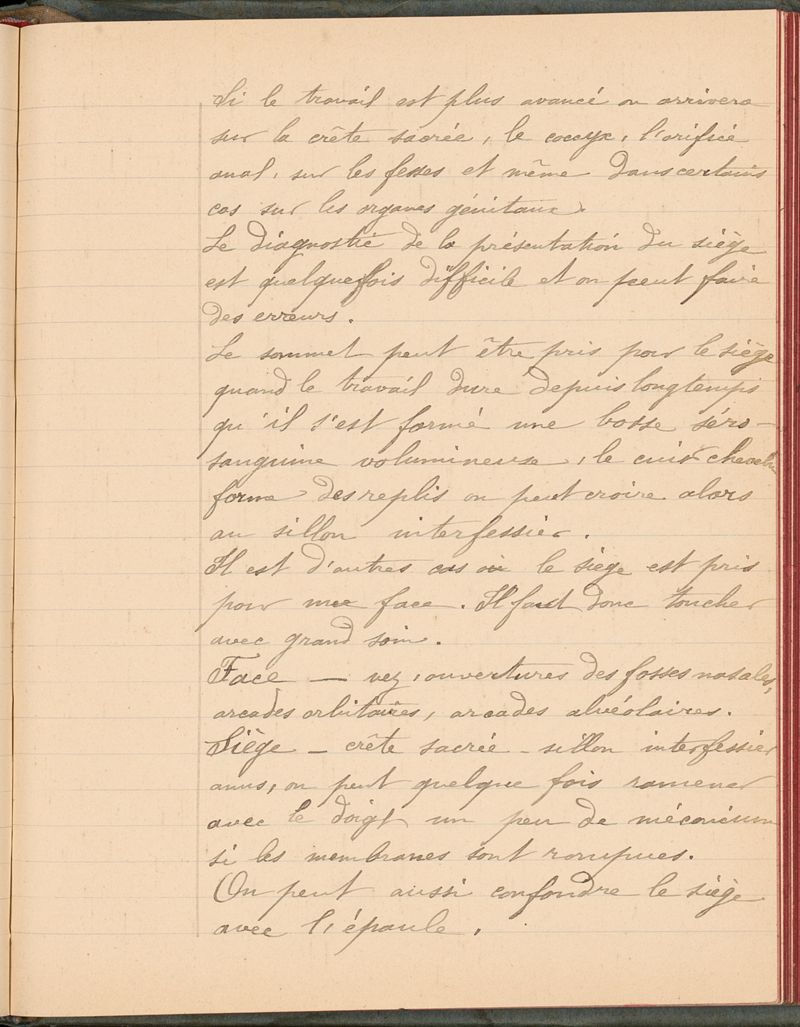 Si le travail est plus avancé on arrivera
sur la crête sacrée, le coccyx, l'orifice
anal, sur les fesses et même dans certains
cas sur les organes génitaux.
Le diagnostic de la présentation du siège
est quelquefois difficile et on peut faire
des erreurs.
Le sommet peut être pris pour le siège
quand le travail dure depuis longtemps
qu'il s'est formé une bosse séro-
sanguine volumineuse, le cuir chevelu
forme des replis on peut croire alors
au sillon interfessier.
Il est d'autres cas où le siège est pris
pour une face. Il faut donc toucher
avec grand soin.
Face — nez, ouvertures des fosses nasales,
arcades orbitaires, arcades alvéolaires.
Siège - crête sacrée - sillon interfessier
anus, on peut quelque fois ramener
avec le doigt un peu de méconium
si les membranes sont rompues.
On peut aussi confondre le siège
avec l'épaule.